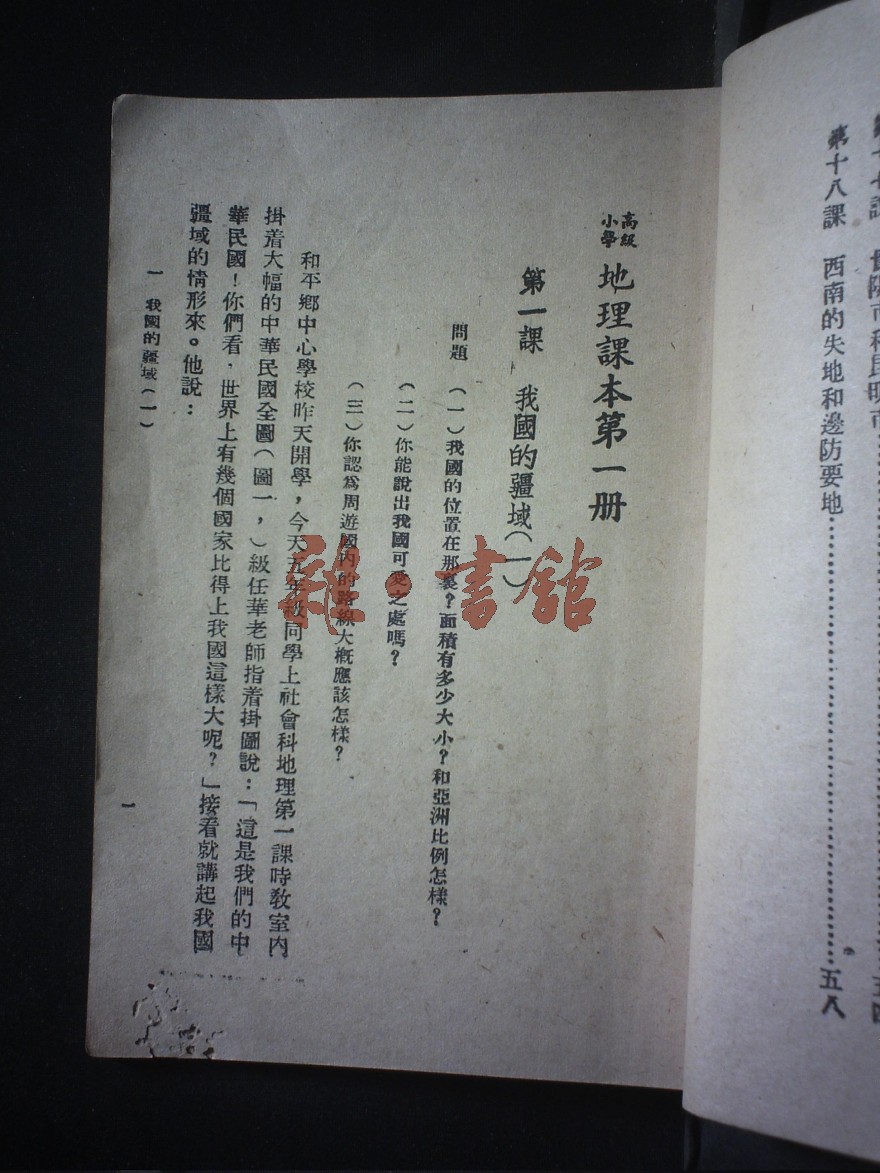 第十八課　西南的失地和邊防要地……五八
高級
小學
地理課本第一册
第一課　我國的疆域(一)
問題　(一)我國的位置在那裏？面積有多少大小？和亞洲比例怎樣？
(二)你能說出我國可愛之處嗎？
(三)你認爲周遊國內的路線大概應該怎樣？
和平鄉中心學校昨天開學，今天五年級同學上社會科地理第一課時教室內
掛着大幅的中華民國全圖(圖一，)級任華老師指着掛圖說：「這是我們的中
華民國！你們看，世界上有幾個國家比得上我國這樣大呢？」接看就講起我國
疆域的情形來。他說：
一　我國的疆域(一)
一
雜·書館